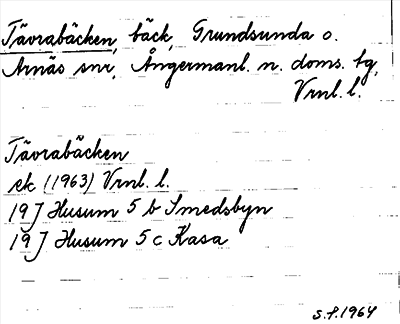 Tävrabäcken, bäck, Grundsunda o.
Arnäs snr, Ångermanl. n. doms. tg,
Vrnl. l.
Tävrabäcken
ek (1963) Vrnl. l.
19 J Husum 5 b Smedsbyn
19 J Husum 5 c Kasa
S.f. 1964